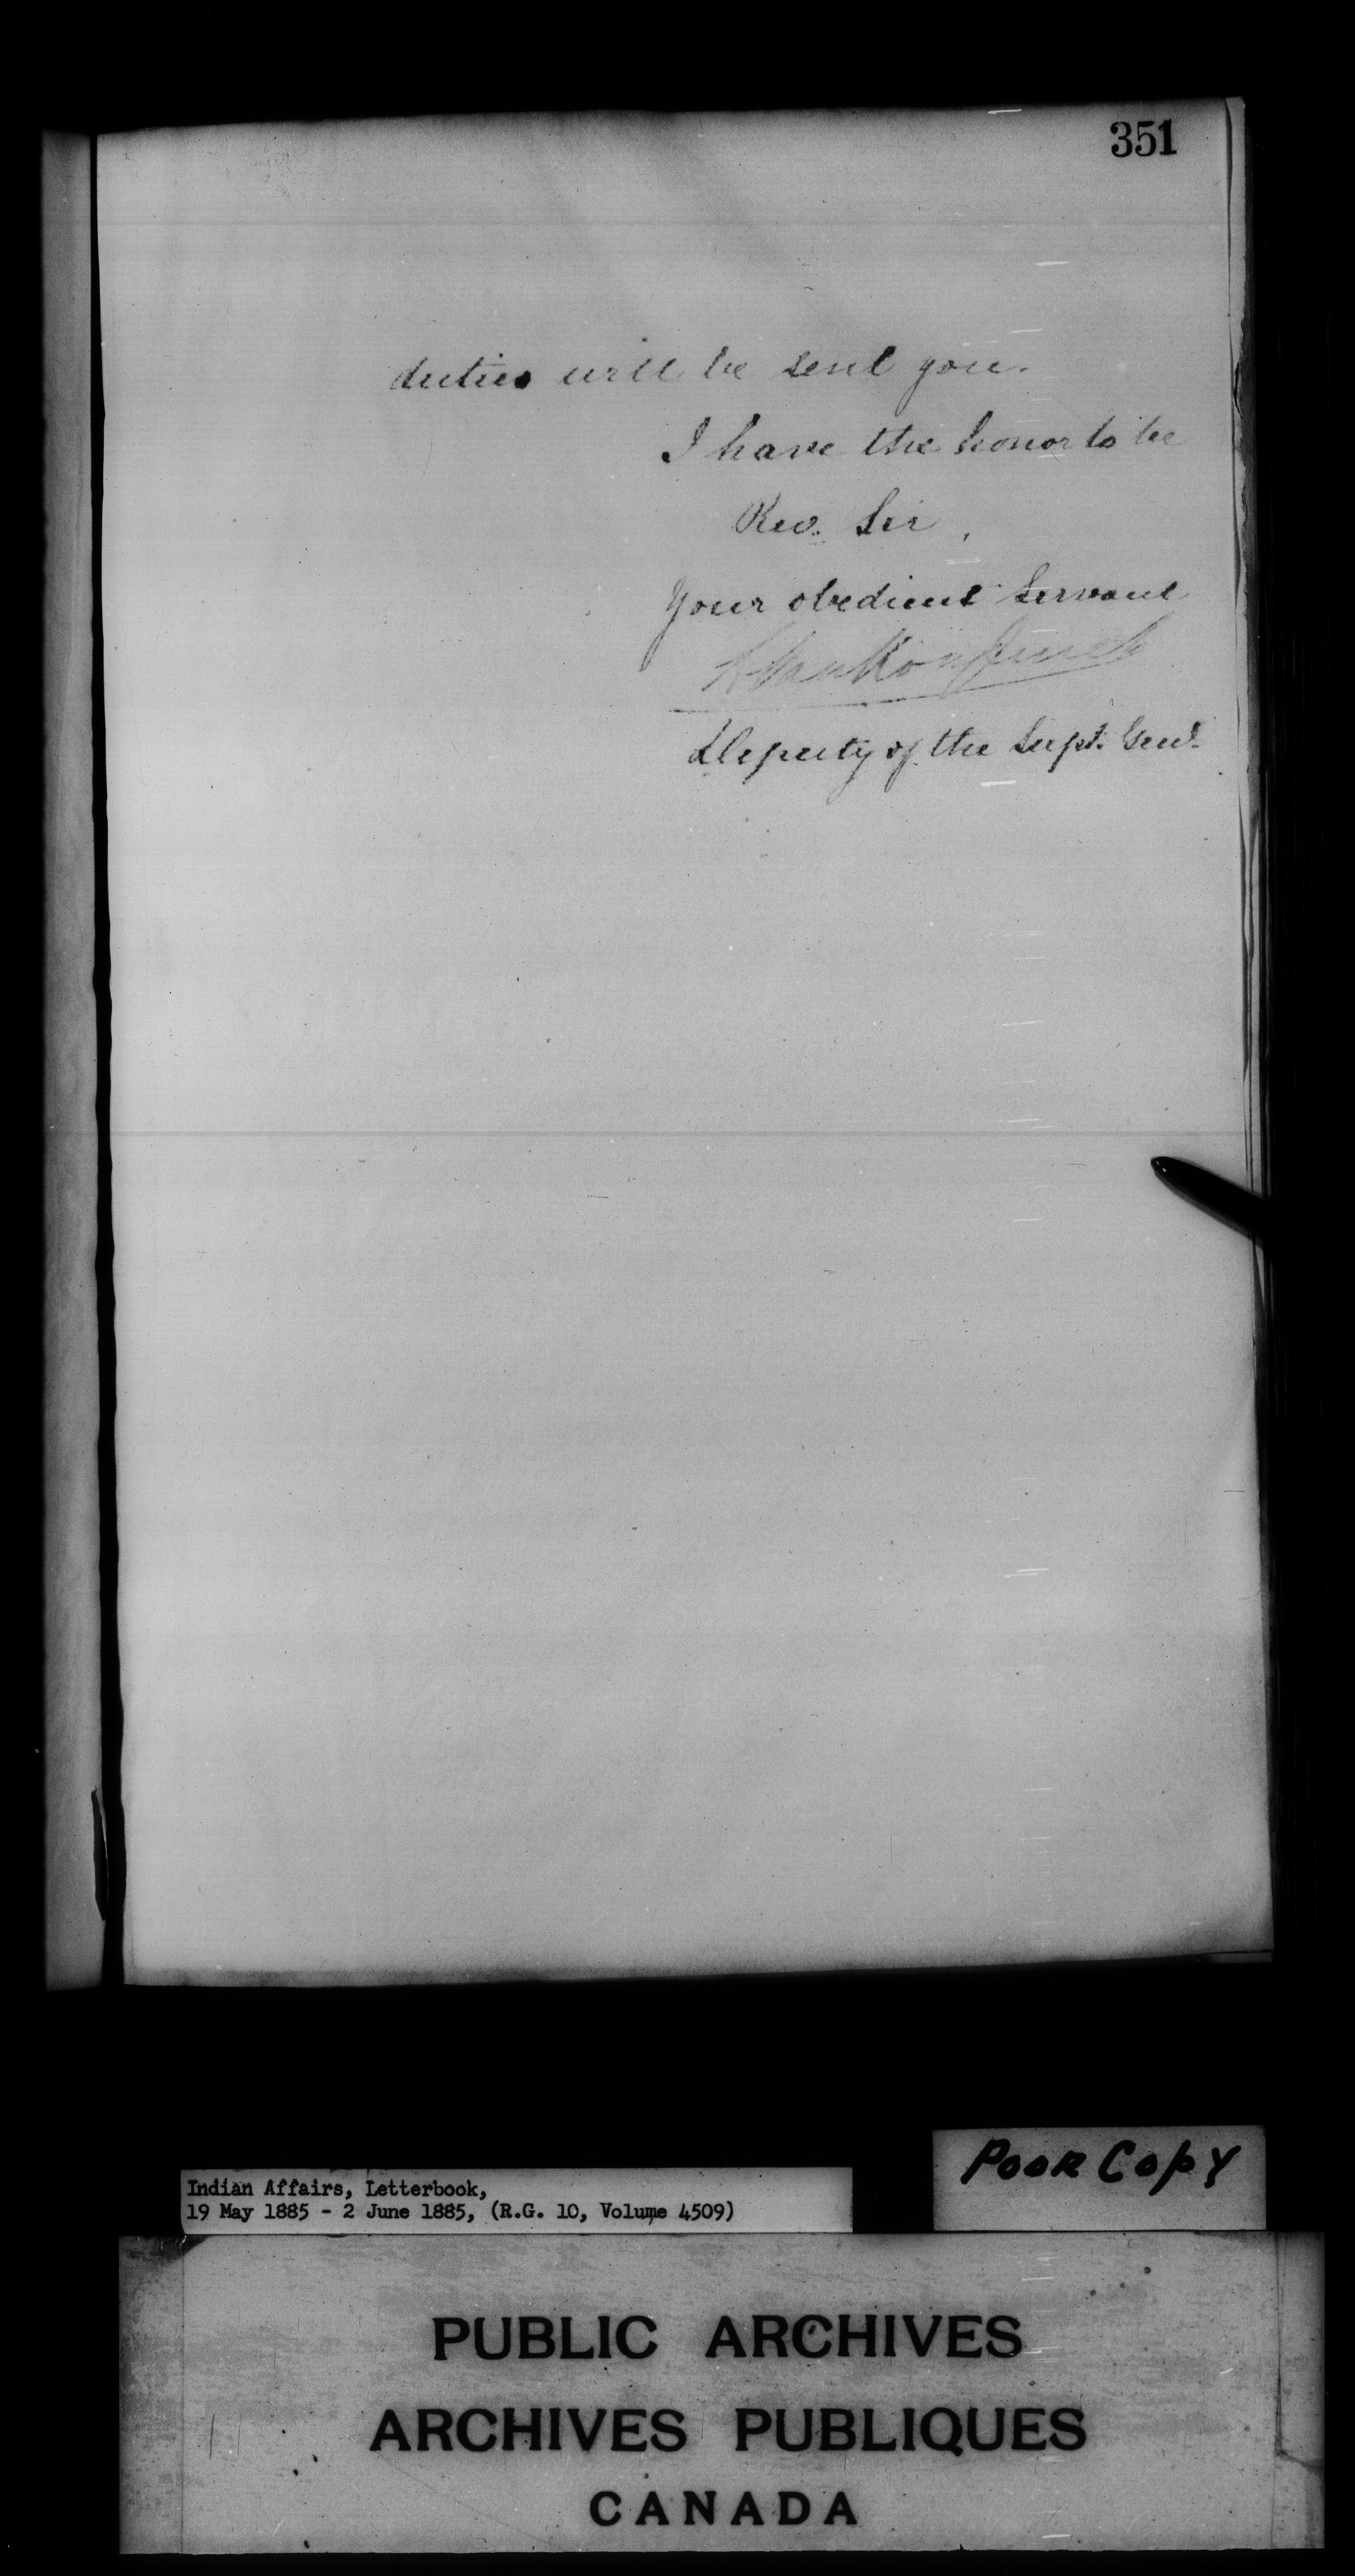 351
duties will be sent you.
I have the honor to be
Rev. Sir,
Your obedient Servant
L. VanKoughnet
Deputy of the Supt. Genl.
Poor Copy
Indian Affairs, Letterbook,
19 May 1885 - 2 June 1885, (R.G. 10, Volume 4509)
PUBLIC ARCHIVES
ARCHIVES PUBLIQUES
CANADA